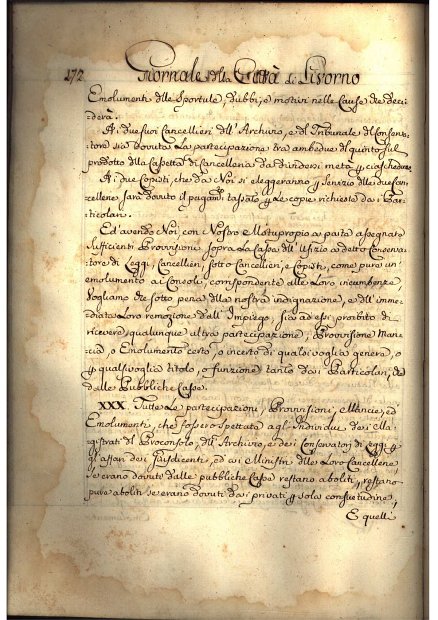 172 Giornale della Città di Livorno
Emolumenti dlle Sportule, dubbi, e motivi nelle Cause che deci-
=derà.
Ai due suoi Cancellieri dell'Archivio, e dl Tribunale dl Conserva-
tore sia dovuta la partecipazione tra ambedue dl quinto sul
prodotto dlla Cassetta di Cancelleria da dividersi metà p ciascheduno.
Ai due Copisti, che da Noi si eleggeranno p servizio dlle due Can-
cellerie sarà dovuto il pagam. tassato p le copie richieste dai Par-
ticolari.
Ed avendo Noi con Nostro Motuproprio a parte assegnato
sufficienti Provvisioni sopra la Cassa dll'Ufizio a detto Conserva-
tore di Leggi, Cancellieri, sotto Cancellieri, e Copisti, come pure un
emolumento ai Consoli, corrispondente alle loro incumbenze,
Vogliamo che sotto pena dlla nostra indignazione, e dll'imme-
diata loro remozione dall'Impiego, sia ad essi proibito di
ricevere qualunque altra partecipazione, Provvisione Man-
cia, o Emolumento certo, o incerto di qualsivoglia genere, o
p qualsivoglia titolo, o funzione tanto dai Particolari, che
dalle Pubbliche Casse.
XXX. Tutte le partecipazioni, Provvisioni, Mancie, ed
Emolumenti, che fossero spettate agl'Individui dei Ma-
gistrati dl Proconsolo, dll'Archivio, e dei Conservatori di Leggi p
gl'affari dei Giusdicenti, ed ai Ministri dlle loro Cancellerie,
se erano dovute dalle pubbliche Casse restano aboliti, restano
pure aboliti se erano dovuti dai privati p sola consuetudine,
E quelli